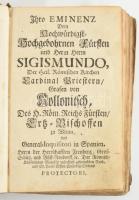 Ihro EMINENZ
Dem
Hochwürdigst-
Hochgebohrnen Fürsten
und Herrn Herrn
SIGISMUNDO,
Der Heil. Römischen Kirchen
Cardinal Priestern,
Grafen von
Kollonitsch,
Des H. Röm. Reichs Fürsten,
Ertz-Bischoffen
zu Wienn,
General-Inquisitorn in Spanien,
Herrn der Herrschafften
PROTECTORI,